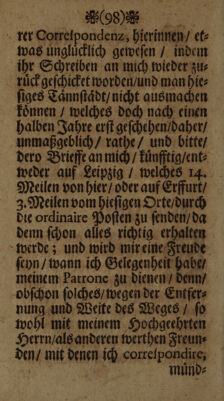 (98)
rer Correspondenz, hierinnen/ et-
was unglücklich gewesen/ indem
ihr Schreiben an mich wieder zu-
rück geschicket worden/und man hie-
siges Tännstädt/ nicht ausmachen
können/ welches doch nach einen
halben Jahre erst geschehen/daher/
unmaßgeblich/ rathe/ und bitte/
dero Brieffe an mich/ künfftig/ent-
weder auf Leipzig/ welches 14.
Meilen von hier/ oder auf Erffurt/
3. Meilen vom hiesigen Orte/durch
die ordinaire Posten zu senden/da
denn schon alles richtig erhalten
werde; und wird mir eine Freude
seyn/ wann ich Gelegenheit habe/
meinem Patrone zu dienen/ denn/
obschon solches/wegen der Entfer-
nung und Weite des Weges/ so
wohl mit meinem Hochgeehrten
Herrn/als anderen werthen Freun-
den/ mit denen ich correspondire,
münd-